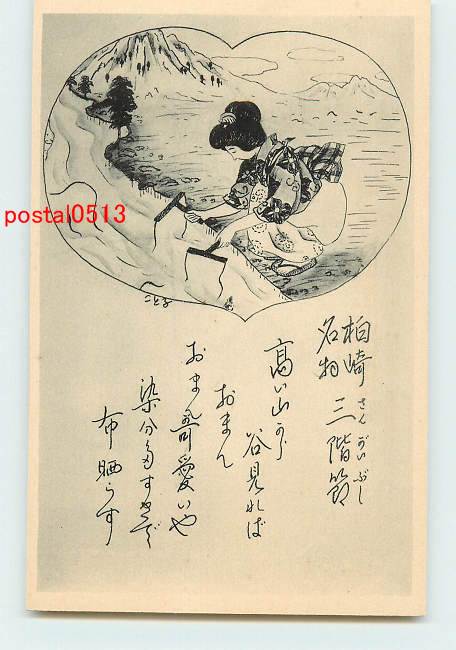 postal0513
ことを
柏崎
名物 三階節
さんがいぶし
高い山から
谷見れば
おまん
おまん可愛いや
染分だすきで
布晒らす